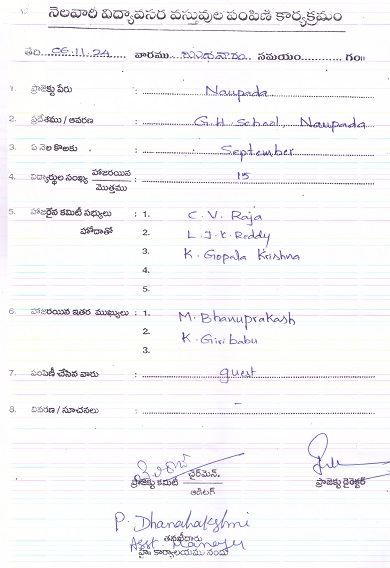 నెలవారీ విద్యావసర వస్తువుల పంపిణి కార్యక్రమం
తేది. 06.11.24 వారము బుధవారం సమయం. గం॥
1. ప్రాజెక్టు పేరు : Naupada
2. ప్రదేశము / ఆవరణ : G.H. School, Naupada
3. ఏ నెల కొఱకు : September
4. విద్యార్థుల సంఖ్య హాజరయిన / మొత్తము : 15
5. హాజరైన కమిటీ సభ్యులు : 1. C. V. Raja
హోదాతో 2. L. J. K. Reddy
3. K. Gopala Krishna
4.
5.
6. హాజరయిన ఇతర ముఖ్యులు : 1. M. Bhanuprakash
2. K. Giri babu
3.
7. పంపిణీ చేసిన వారు : guest
8. వివరణ / సూచనలు : -
ప్రాజెక్టు కమిటీ చైర్‌మెన్. / ఆడిటర్ ప్రాజెక్టు డైరెక్టర్
P. Dhanalakshmi
తనఖీదారు
Asst. Manager
హై కార్యాలయము నందు